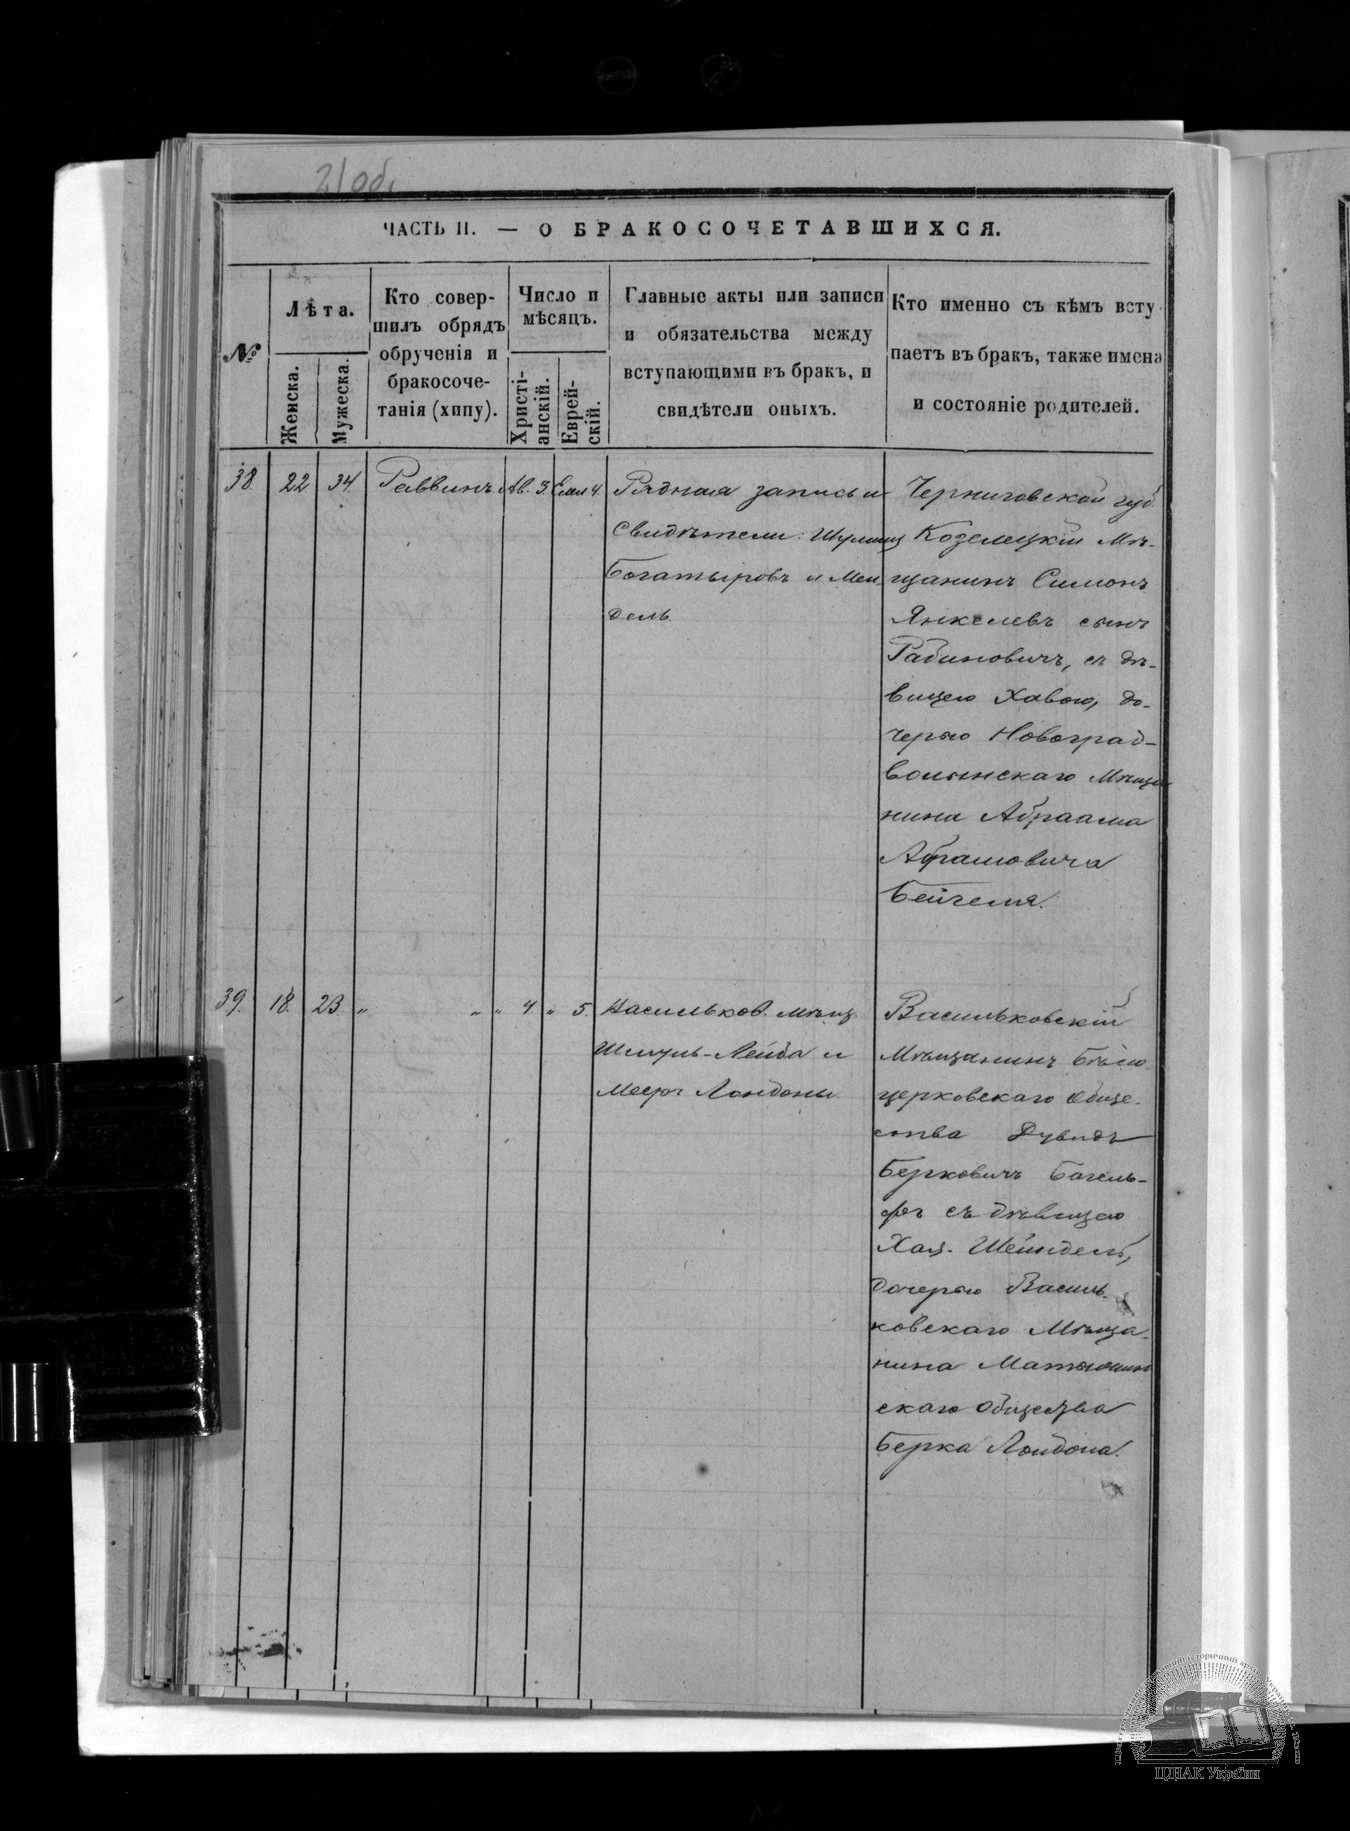 21об.
ЧАСТЬ II. — О БРАКОСОЧЕТАВШИХСЯ.
№
Лѣта.
Женска.
Мужеска.
Кто совер-
шилъ обрядъ
обрученія и
бракосоче-
танія (хипу).
Число и
мѣсяцъ.
Христі-
анскій.
Еврей-
скій.
Главные акты или записи
и обязательства между
вступающими въ бракъ, и
свидѣтели оныхъ.
Кто именно съ кѣмъ всту
паетъ въ бракъ, также имена
и состояніе родителей.
38. 22 34. Раввинъ Ав. 3. Елил 4.
Рядная запись и
Свидѣтели: Шулимъ
Богатыровъ и Мен
дель
Черниговской губ.
Козелецкій Мѣ-
щанинъ Симонъ
Янкелевъ сынъ
Рабиновичъ, съ дѣ-
вицею Хавою, до-
черью Новоград-
волынскаго Мѣща
нина Абраама
Абрамовича
Бейгеля.
39. 18. 23. " " " 4. " 5.
Васильков. мѣщ.
Шмуль-Лейба и
Мееръ Лондоны
Васильковскій
Мѣщанинъ Бѣло
церковскаго Обще-
ства Дувидъ
Берковичъ Багель-
фъ съ дѣвицею
Хая-Шейндель,
дочерью Василь-
ковскаго Мѣща-
нина Матюшин
скаго Общества
Берка Лондона.
ЦДІАК України